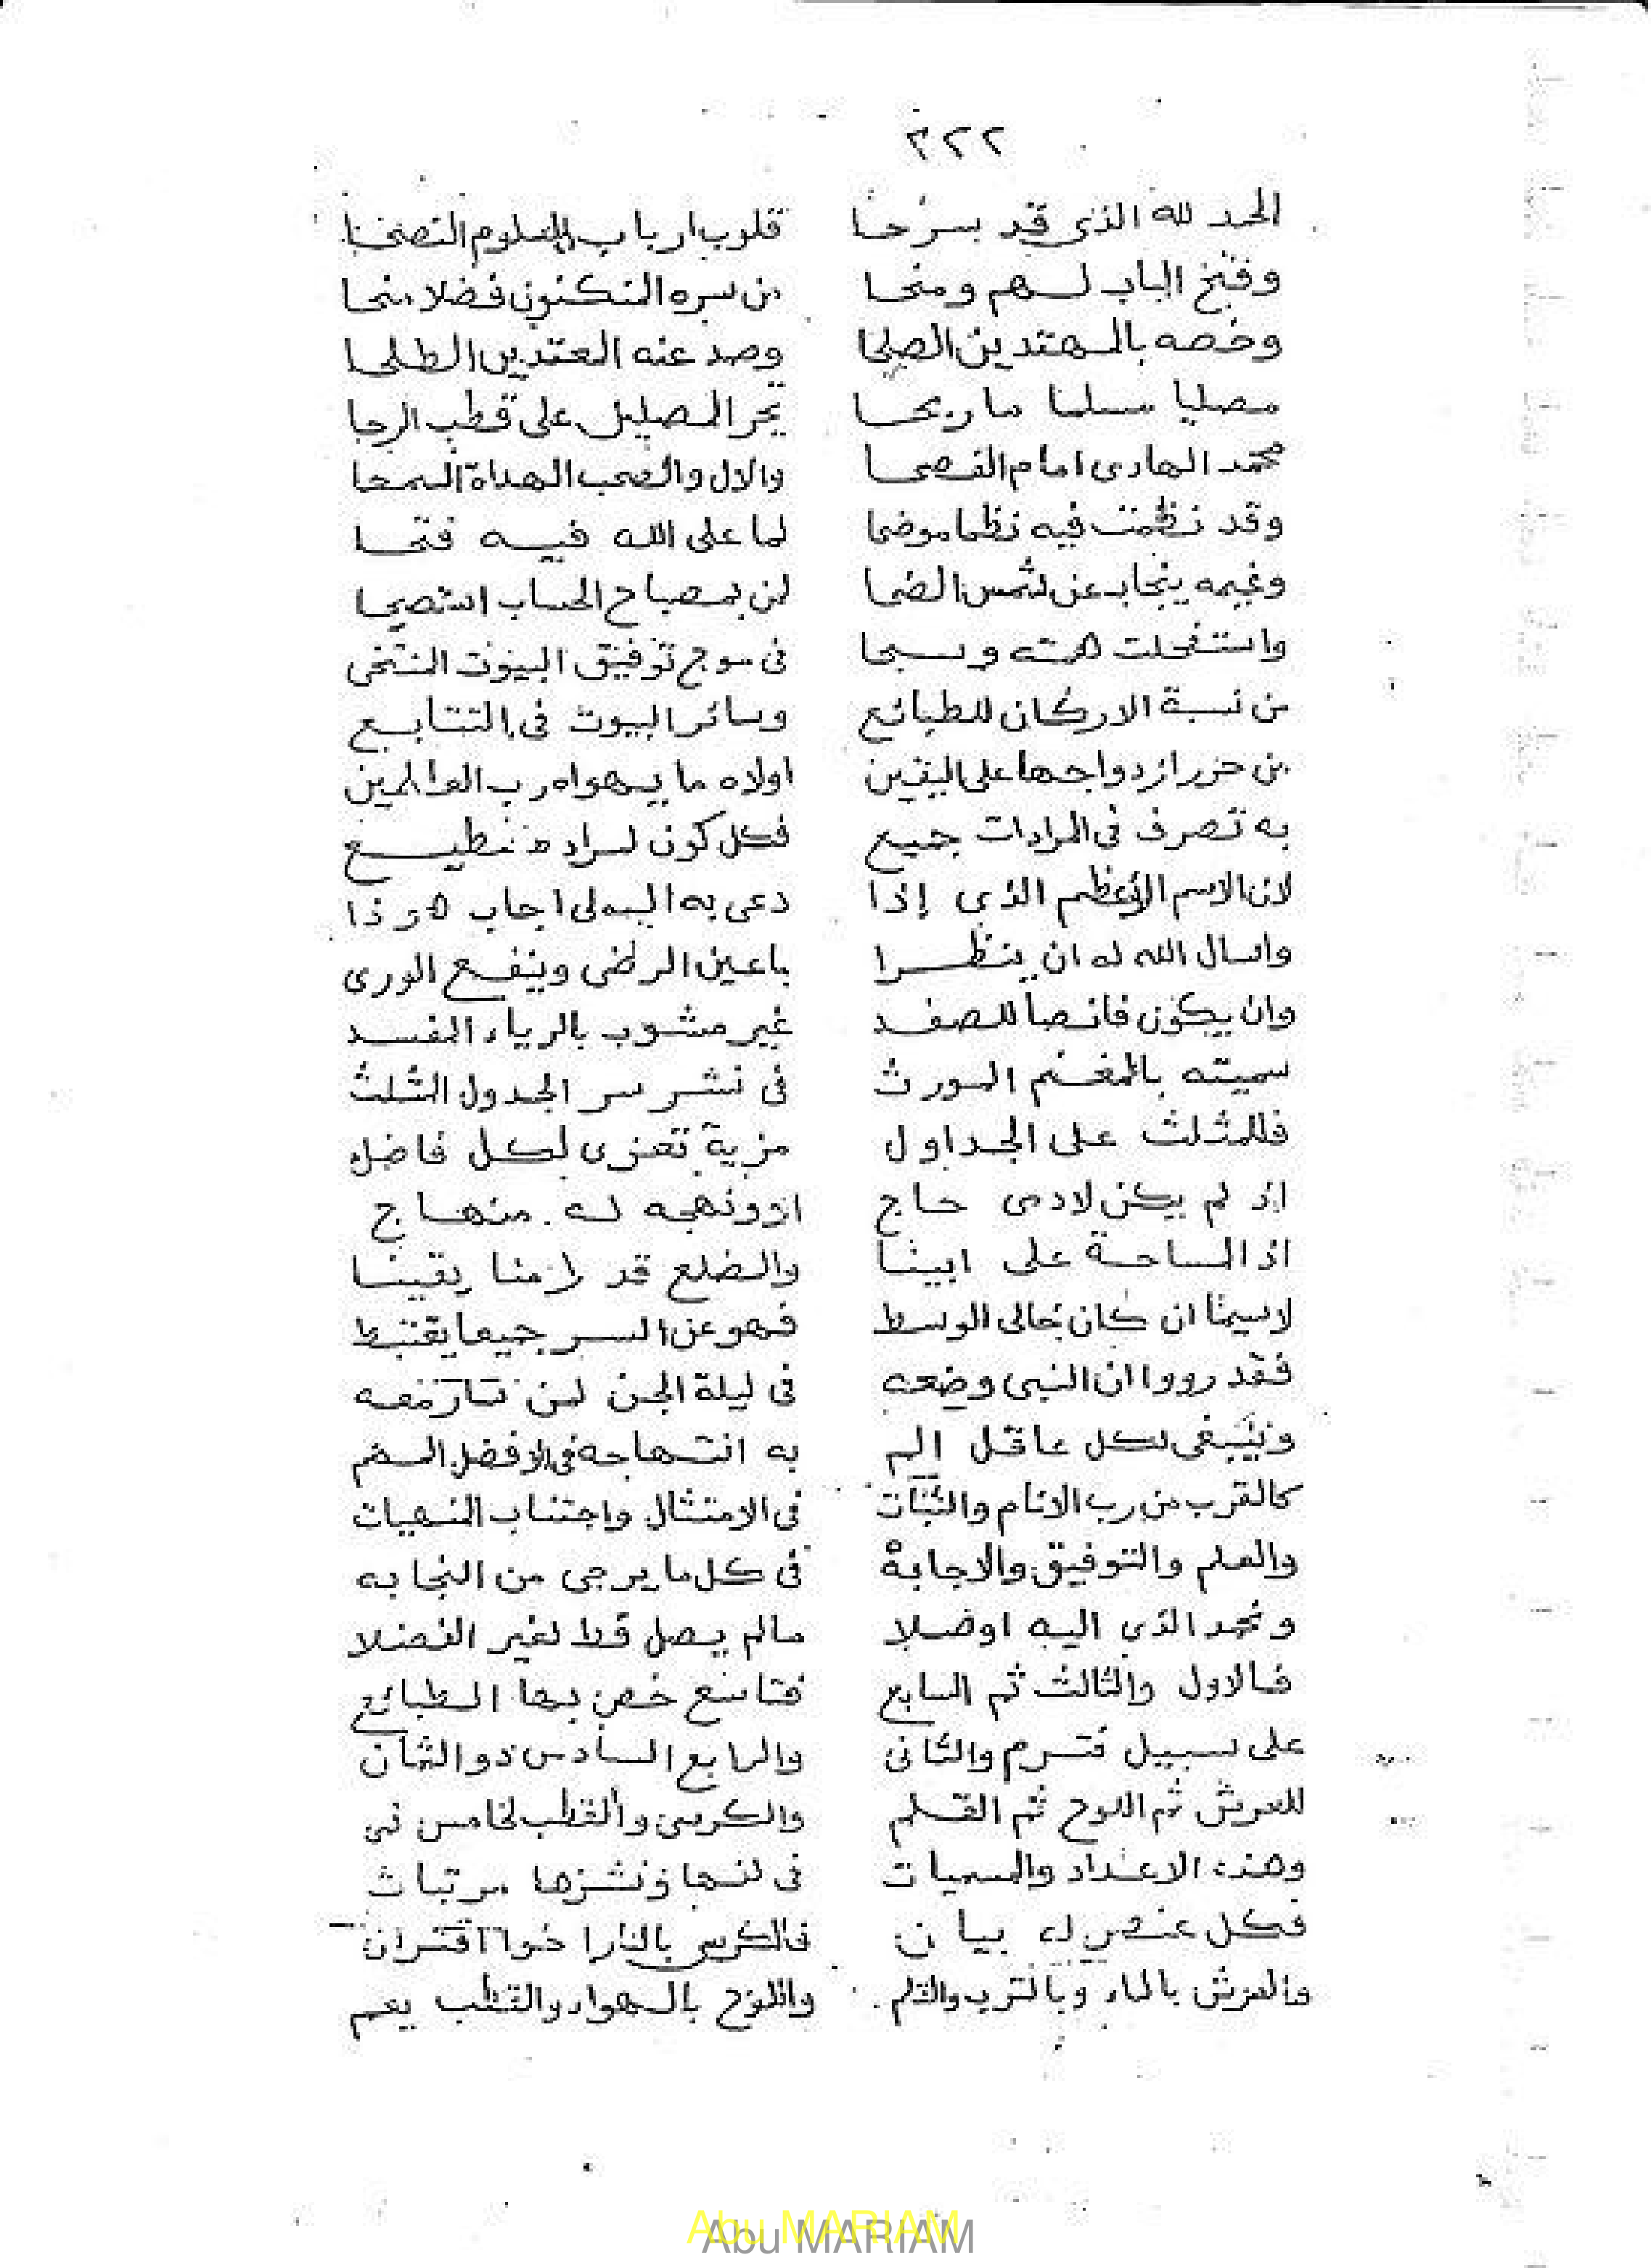 ٣٢٢
الحمد لله الذى قد شرحا قلوب ارباب العلوم النصحا
وفتح الباب لهم ومنحا من سره المكنون فضلا منحا
وخصه بالمهتدين الصلحا وصد عنه المعتدين الطلحا
مصليا مسلما ما ربحا على قطب الرحا
محمد الهادى امام الفصحا والال والصحب الهداة السمحا
وقد نظمت فيه نظما موضحا لما على الله فيه فتحا
وغيمه ينجاب عن شمس الضحا لمن بمصباح الحساب استصبحا
واستفحلت همته وسبحا فى موج توفيق البيوت
من نسبة الاركان للطبائع وسائر البيوت فى التتابع
من حزر ازدواجها على اليقين اولاه ما يهواه رب العالمين
به تصرف فى المرادات جميع فكل كون لمراده مطيع
لان الاسم الاعظم الذي إذا دعى به المولى اجاب هو ذا
واسال الله له ان ينظرا باعين الرضى وينفع الورى
وان يكون للصفد غير مشوب بالرياء المفسد
سميته بالمغنم المورث فى نشر سر الجدول المثلث
فللمثلث على الجداول مزية تعزى لكل فاضل
اذ لم يكن لادمى حاج الا ونهجه له منهاج
اذ المساحة على ابينا والضلع قد لامنا يقينا
لاسيما ان كان خالى الوسط فهو عن السر جميعا يغتبط
فقد رووا ان النبى وضعه فى ليلة الجن لمن
وينبغى لكل عاقل الم به انتهاجه فى الافضل
كالقرب من رب الانام والثبات فى الامتثال واجتناب المنهيات
والعلم والتوفيق والاجابة فى كل ما يرجى من النجابه
ونحمد الذي اليه اوصلا مالم يصل قط لغير الفضلا
فالاول والثالث ثم السابع فتاسع خص بها الطبائع
على سبيل والثانى والرابع السادس ذو الثمان
للعرش ثم اللوح ثم القلم والكرسى والقطب لخامس نمى
وهذه الاعداد والمسميات فى لفها ونشرها مرتبات
فكل عنصر له بيان فالكرسى بالنار اقتران
والعرش بالماء وبالترب والقلم واللوح بالهواء والقطب يعم
Abu MARIAM